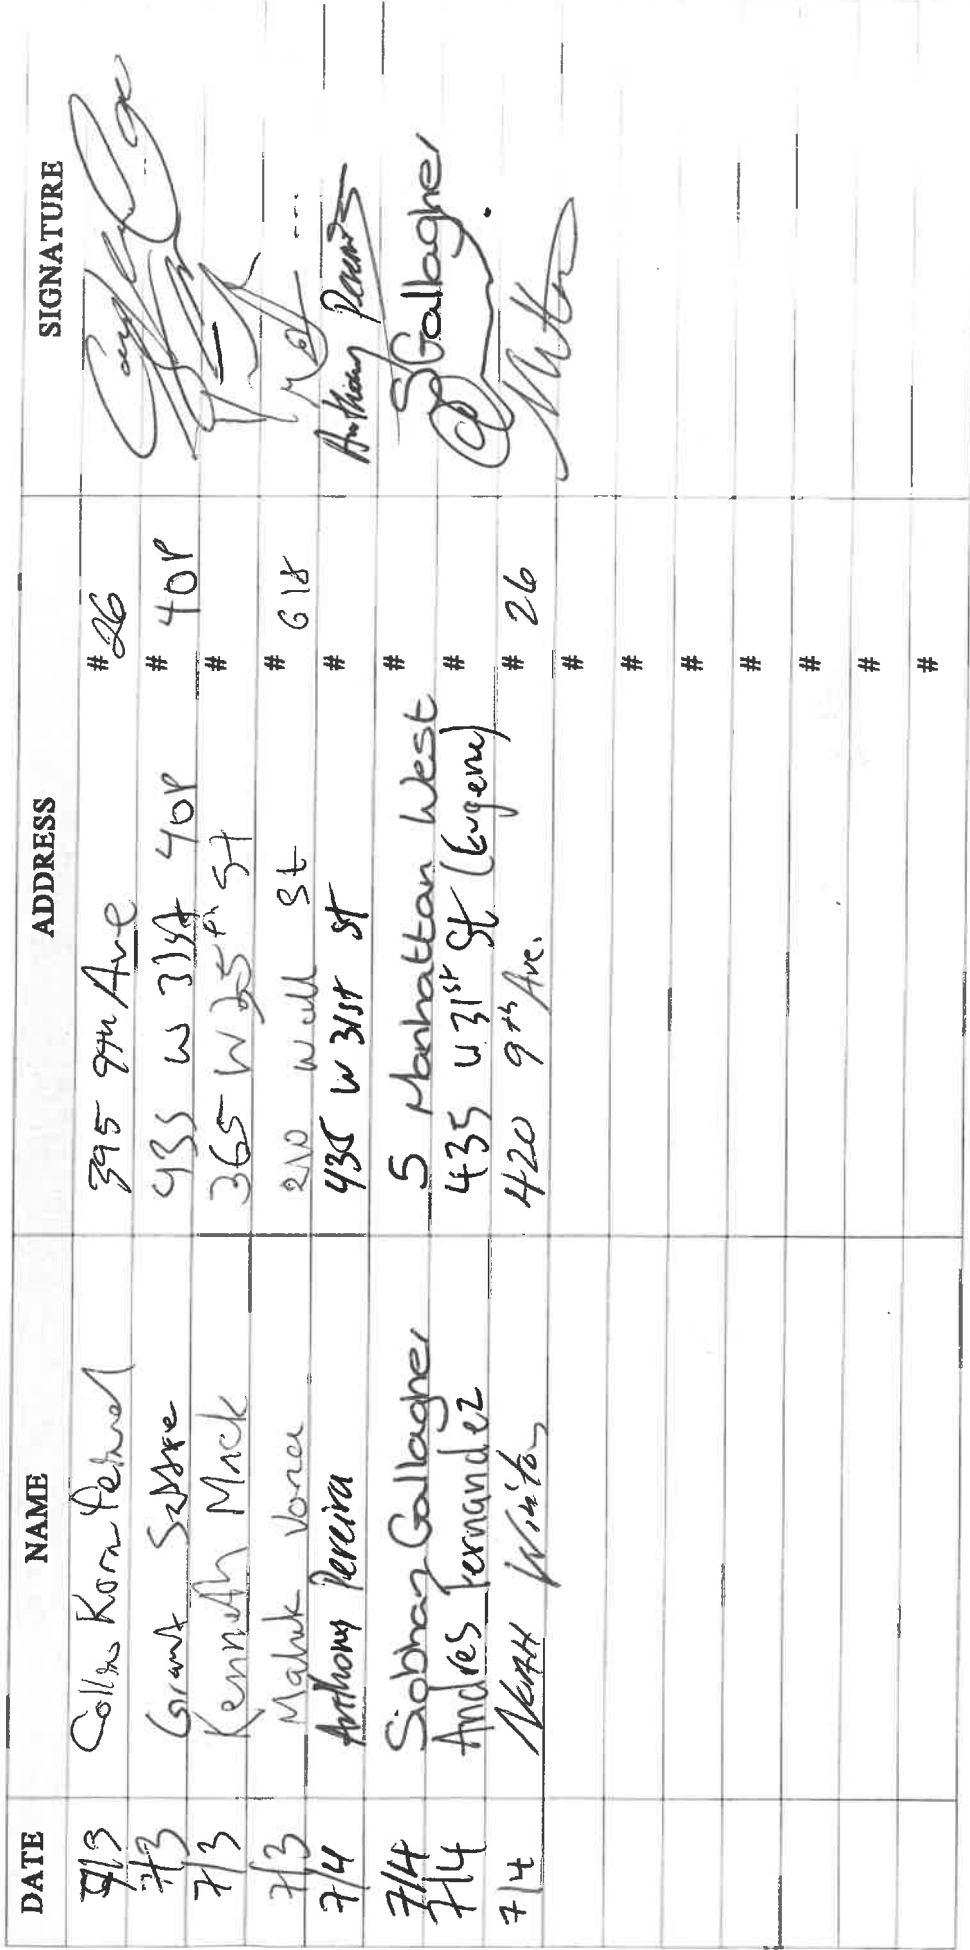 DATE NAME ADDRESS SIGNATURE
7/3 395 9th Ave # 26
7/3 Grant 435 W 31st 40P # 40P
7/3 Kenneth Mack 365 W 25th St #
7/3 Mahek Vora 210 Wall St # 618
7/4 Anthony Pereira 435 W 31st St # Anthony
7/4 Siobhan Gallagher 5 Manhattan West # SGallagher
7/4 Andres Fernandez 435 W 31st St (Eugene) #
7/4 Winton 420 9th Ave. # 26
#
#
#
#
#
#
#